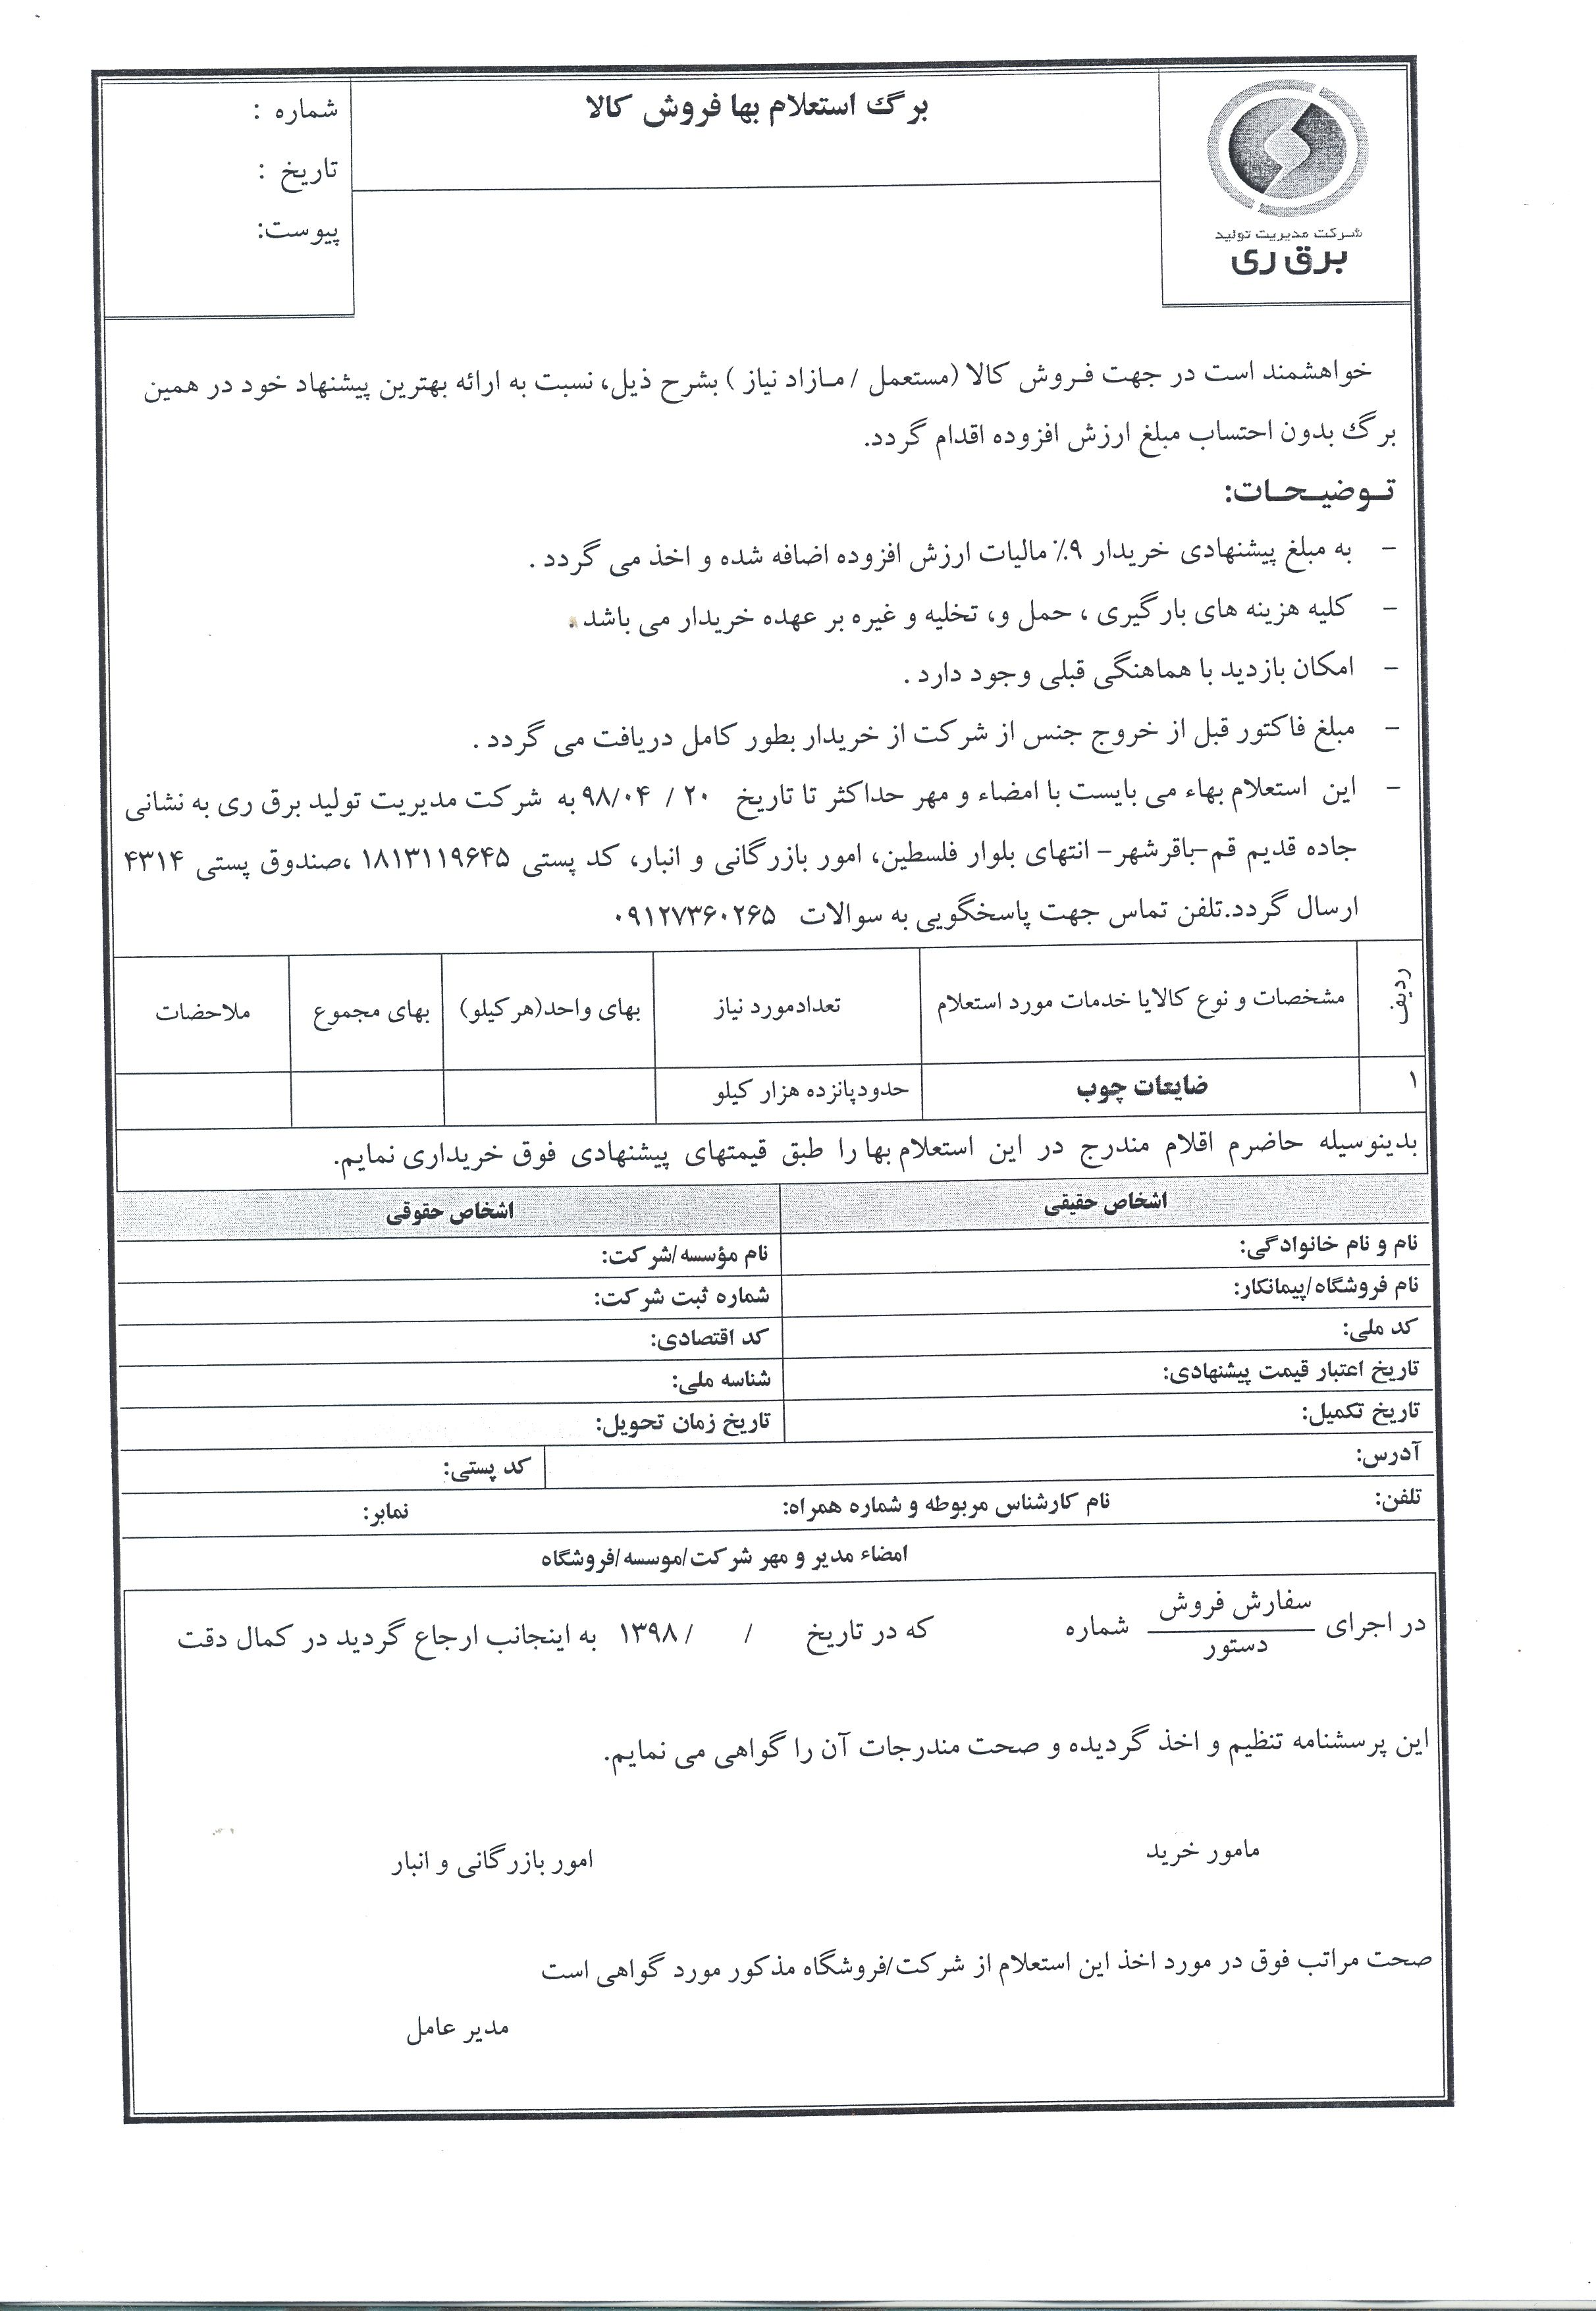 شرکت مدیریت تولید
برق ری
برگ استعلام بها فروش کالا
شماره :
تاریخ :
پیوست:
خواهشمند است در جهت فـروش کالا (مستعمل / مـازاد نیاز ) بشرح ذیل، نسبت به ارائه بهترین پیشنهاد خود در همین
برگ بدون احتساب مبلغ ارزش افزوده اقدام گردد.
تـوضیـحـات:
– به مبلغ پیشنهادی خریدار ۹٪ مالیات ارزش افزوده اضافه شده و اخذ می گردد .
– کلیه هزینه های بارگیری ، حمل و، تخلیه و غیره بر عهده خریدار می باشد .
– امکان بازدید با هماهنگی قبلی وجود دارد .
– مبلغ فاکتور قبل از خروج جنس از شرکت از خریدار بطور کامل دریافت می گردد .
– این استعلام بهاء می بایست با امضاء و مهر حداکثر تا تاریخ ۲۰ / ۹۸/۰۴ به شرکت مدیریت تولید برق ری به نشانی
جاده قدیم قم–باقرشهر– انتهای بلوار فلسطین، امور بازرگانی و انبار، کد پستی ۱۸۱۳۱۱۹۶۴۵ ،صندوق پستی ۴۳۱۴
ارسال گردد.تلفن تماس جهت پاسخگویی به سوالات ۰۹۱۲۷۳۶۰۲۶۵
ردیف مشخصات و نوع کالایا خدمات مورد استعلام تعدادمورد نیاز بهای واحد(هرکیلو) بهای مجموع ملاحضات
۱ ضایعات چوب حدودپانزده هزار کیلو
بدینوسیله حاضرم اقلام مندرج در این استعلام بها را طبق قیمتهای پیشنهادی فوق خریداری نمایم.
اشخاص حقیقی اشخاص حقوقی
نام و نام خانوادگی: نام مؤسسه/شرکت:
نام فروشگاه/پیمانکار: شماره ثبت شرکت:
کد ملی: کد اقتصادی:
تاریخ اعتبار قیمت پیشنهادی: شناسه ملی:
تاریخ تکمیل: تاریخ زمان تحویل:
آدرس: کد پستی:
تلفن: نام کارشناس مربوطه و شماره همراه: نمابر:
امضاء مدیر و مهر شرکت/موسسه/فروشگاه
در اجرای سفارش فروش شماره که در تاریخ / /۱۳۹۸ به اینجانب ارجاع گردید در کمال دقت
دستور
این پرسشنامه تنظیم و اخذ گردیده و صحت مندرجات آن را گواهی می نمایم.
مامور خرید امور بازرگانی و انبار
صحت مراتب فوق در مورد اخذ این استعلام از شرکت/فروشگاه مذکور مورد گواهی است
مدیر عامل